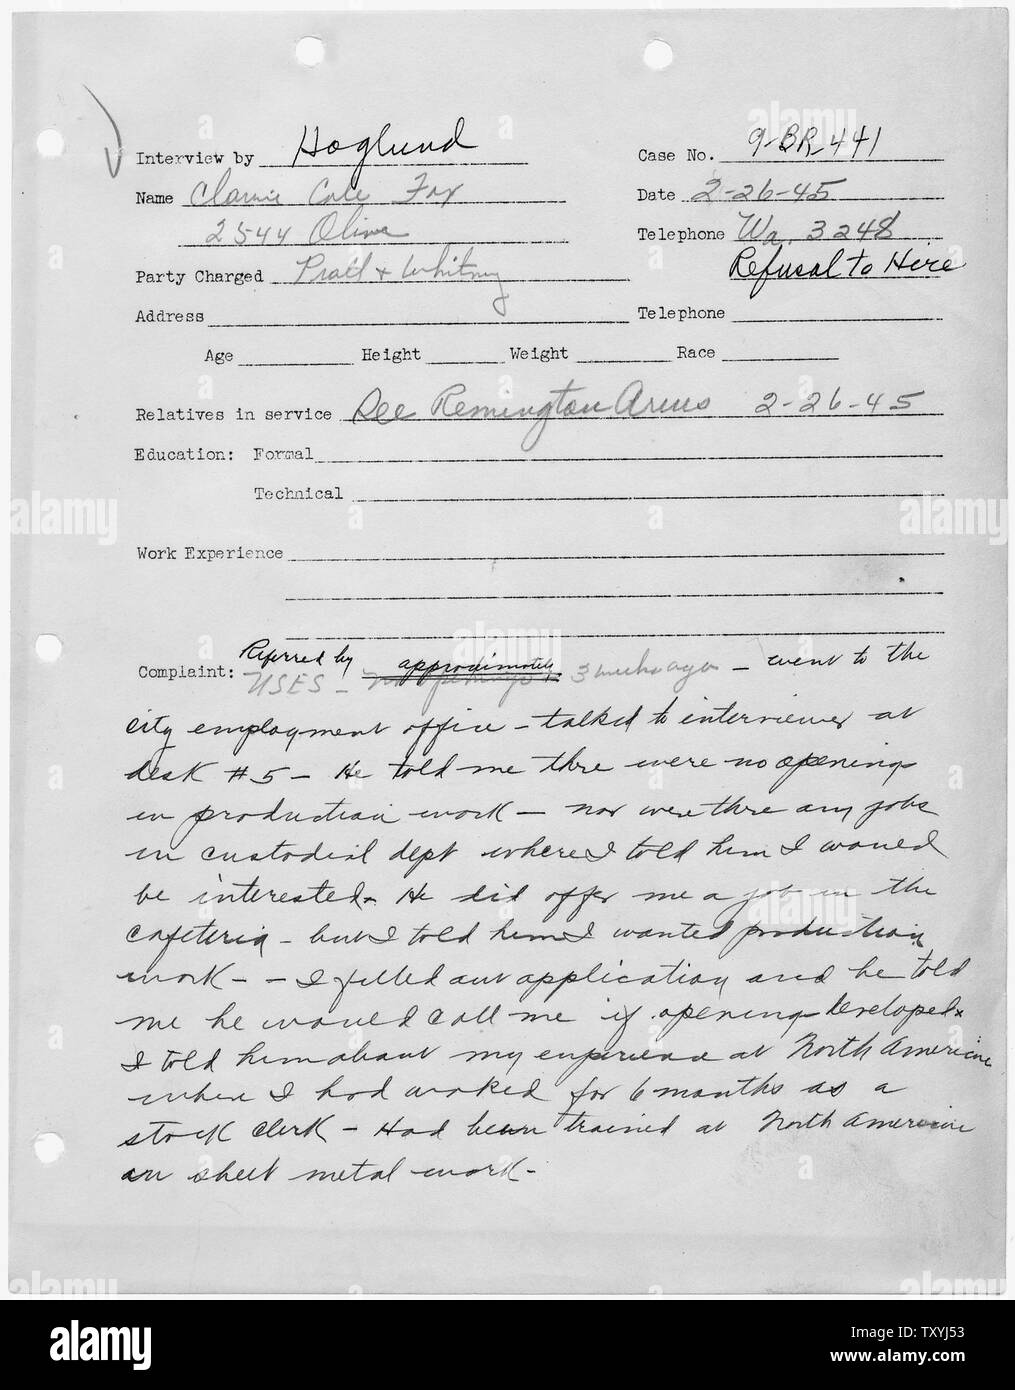 Interview by Hoglund Case No. 9-BR-441
Name Cole Fox Date 2-26-45
2544 Olive Telephone Wa. 3248
Party Charged Pratt + Whitney Refusal to Hire
Address Telephone
Age Height Weight Race
Relatives in service See Remington Arms 2-26-45
Education: Formal
Technical
Work Experience
Complaint: Referred by USES - approximately 3 weeks ago - went to the
city employment office - talked to interviewer at
desk #5 - He told me thre were no openings
in production work - nor were thre any jobs
in custodial dept where I told him I would
be interested. He did offer me a job in the
cafeteria - but I told him I wanted production
work - - I filled out application and he told
me he would call me if openings developed.
I told him about my experience at North American
where I had worked for 6 months as a
stock clerk - Had been trained at North American
in sheet metal work -
alamy
Image ID: TXYJ53
www.alamy.com